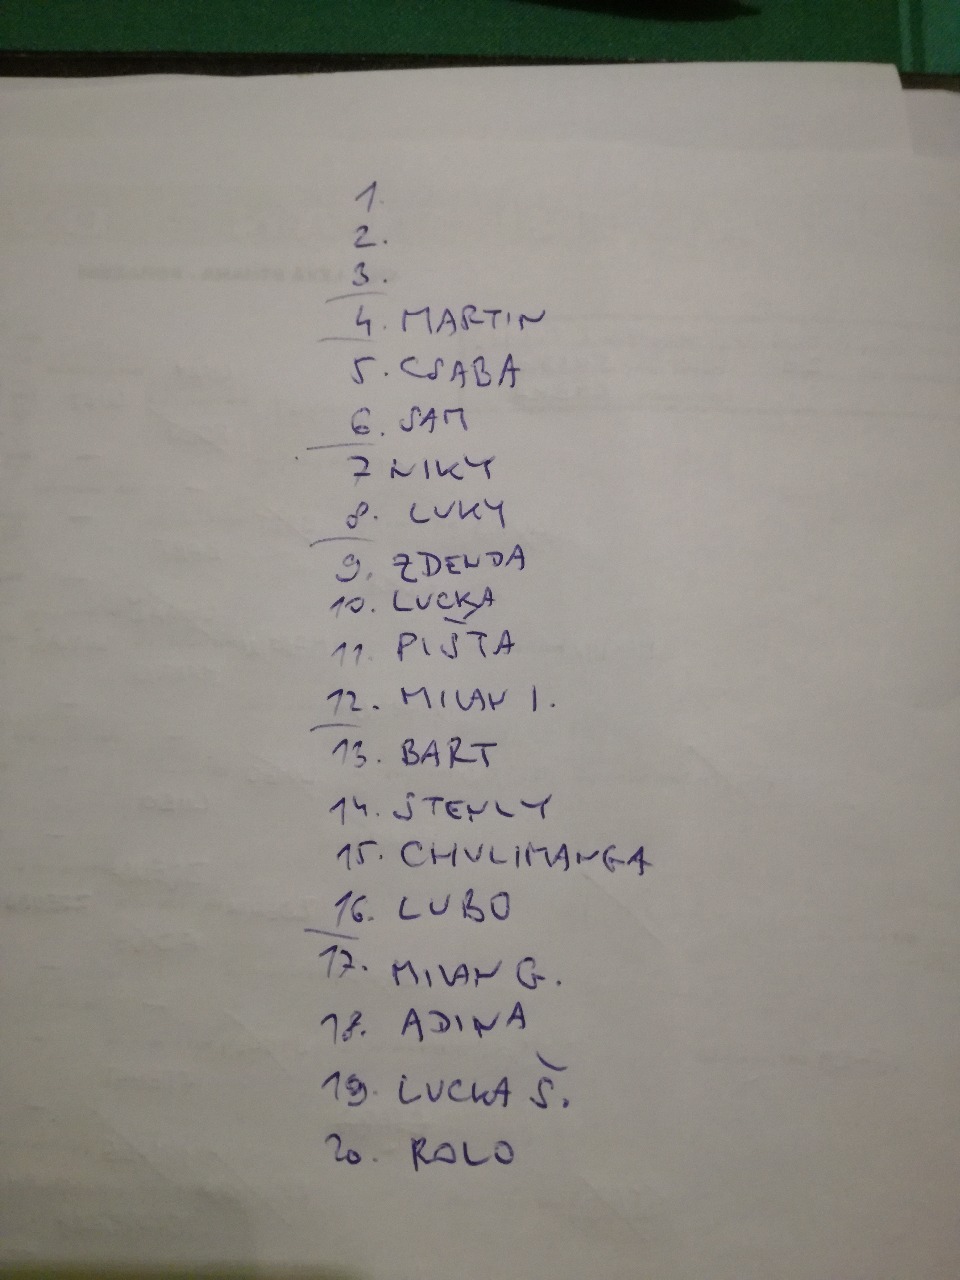 1.
2.
3.
4. MARTIN
5. CSABA
6. SAM
7 NIKY
8. LUKY
9. ZDENDA
10. LUCKA
11. PIŠTA
12. MILAN I.
13. BART
14. STENLY
15. CHULIMANGA
16. LUBO
17. MILAN G.
18. ADINA
19. LUCKA Š.
20. ROLO